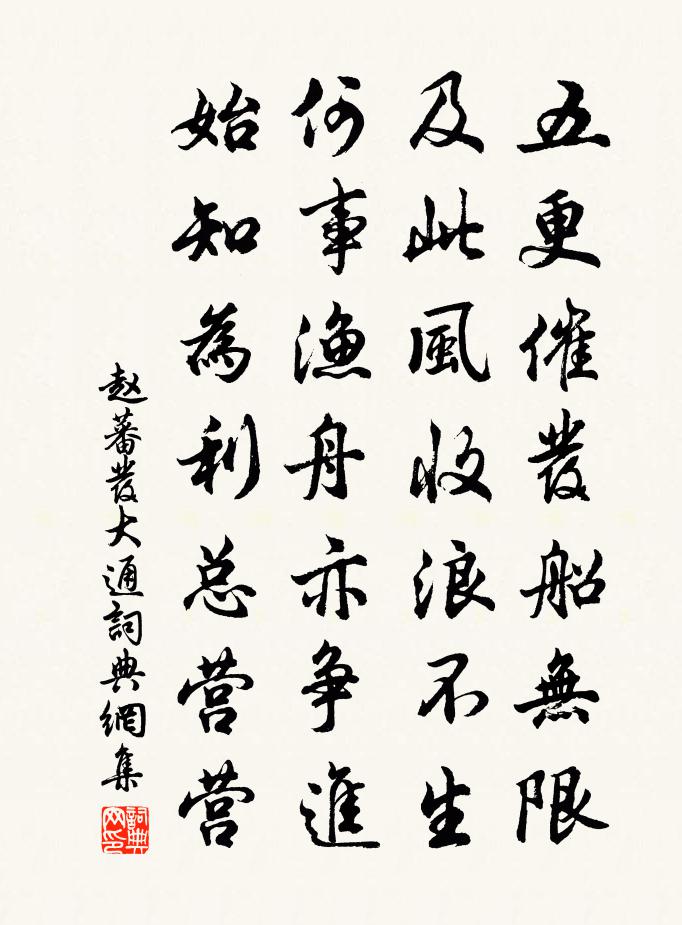 五更催發船無限
及此風收浪不生
何事漁舟亦爭進
始知為利总营营
赵蕃發大通詞典網集
詞典网印